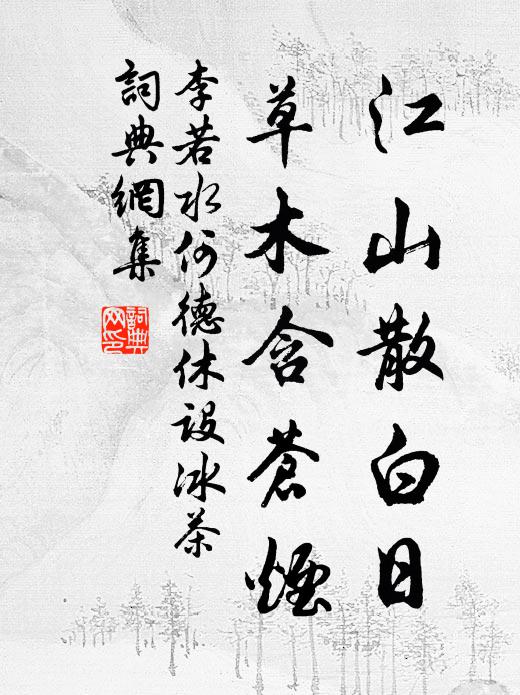 江山散白日
草木含蒼煙
李若水何德休設冰茶
詞典網集
詞典
网印